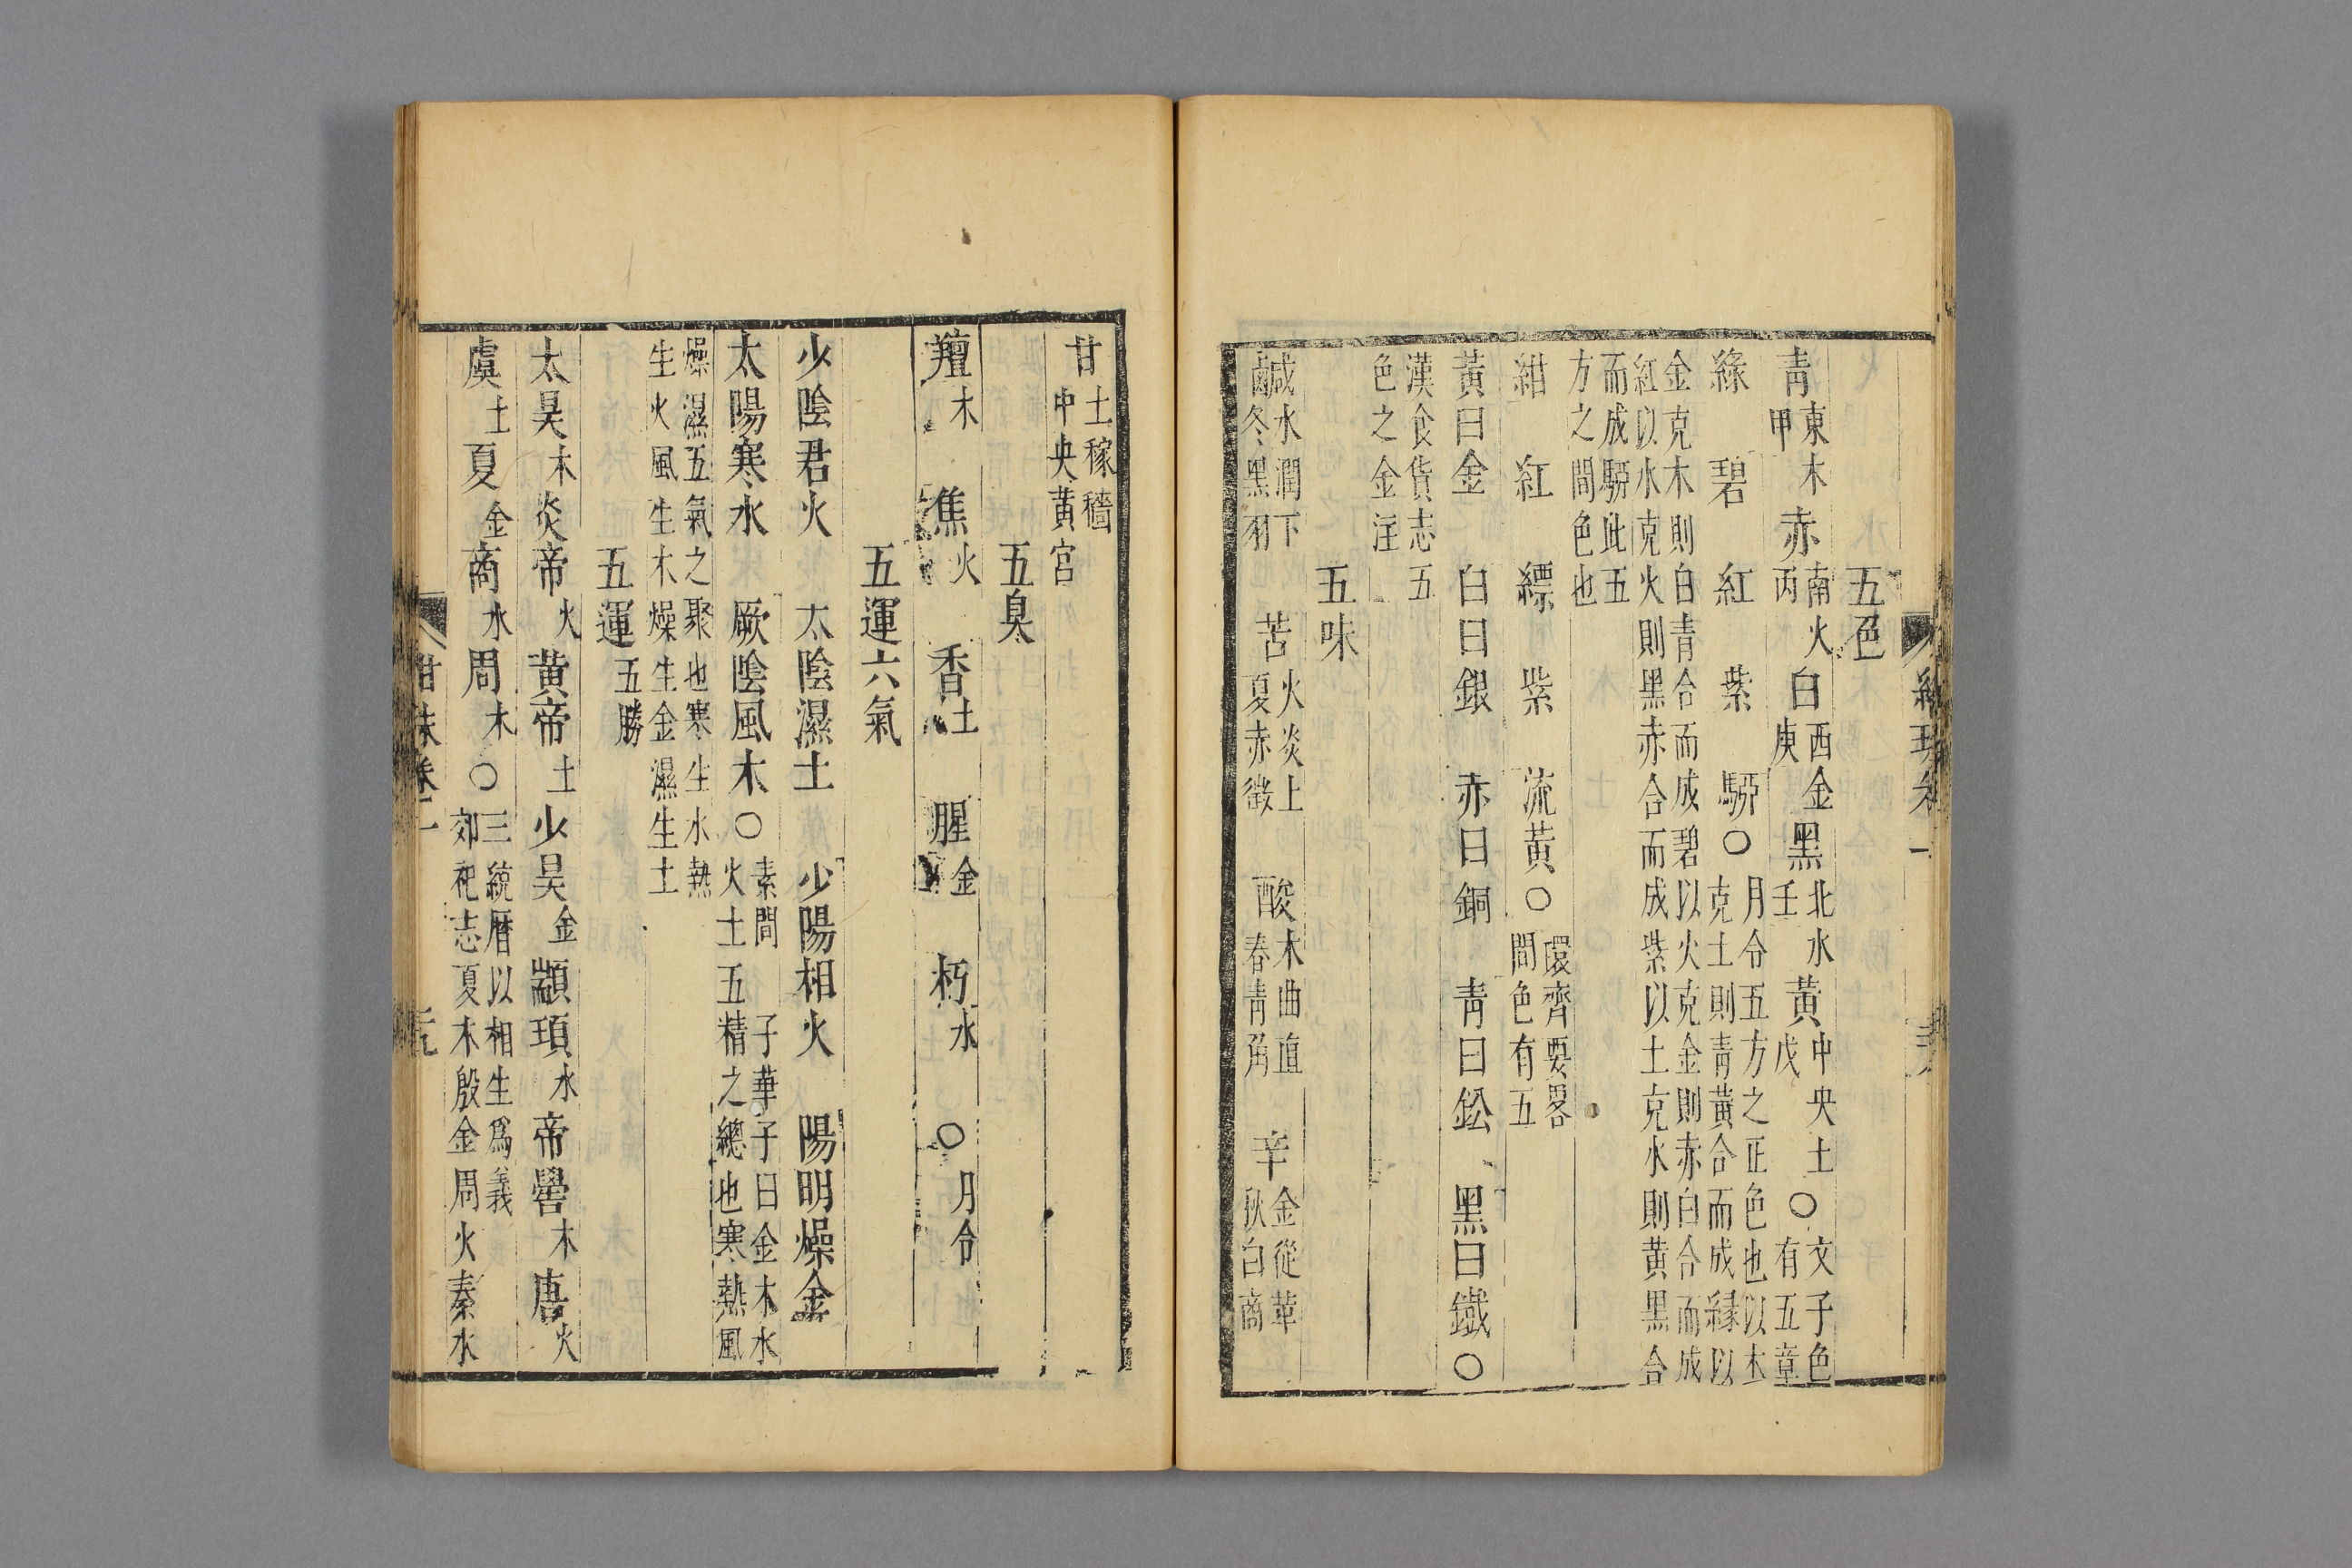 五色
青東木甲 赤南火丙 白西金庚 黑北水壬 黃中央土戊 ○文子色有五章
綠 碧 紅 紫 騮○月令五方之正色也以木克土則青黃合而成緑以
金克木則白青合而成碧以火克金則赤白合而成
紅以水克火則黑赤合而成紫以土克水則黃黑合
而成騮此五
方之間色也
紺 紅 縹 紫 流黃○環齊要畧間色有五
黃曰金 白曰銀 赤曰銅 青曰鈆 黑曰鐵○
漢食貨志五
色之金注
五味
鹹水潤下冬黑羽 苦火炎上夏赤徵 酸木曲直春青角 辛金從革秋白商
甘土稼穡中央黃宮
五臭
羶木 焦火 香土 腥金 朽水 ○月令
五運六氣
少陰君火 太陰濕土 少陽相火 陽明燥金
太陽寒水 厥陰風木○素問火土五精之總也寒熱風 子華子曰金木水
燥濕五氣之聚也寒生水熱
生火風生木燥生金濕生土
五運五勝
太昊木 炎帝火 黃帝土 少昊金 顓頊水 帝嚳木 唐火
虞土 夏金 商水 周木○三統曆以相生爲義
郊祀志夏木殷金周火秦水